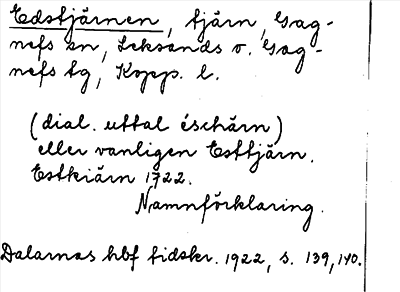 Edstjärnen, tjärn, Gag-
nefs sn, Leksands o. Gag-
nefs tg, Kopp. l.
(dial. uttal éschärn)
eller vanligen Esttjärn.
Estkiärn 1722.
Namnförklaring.
Dalarnas hbf tidskr. 1922, s. 139, 140.